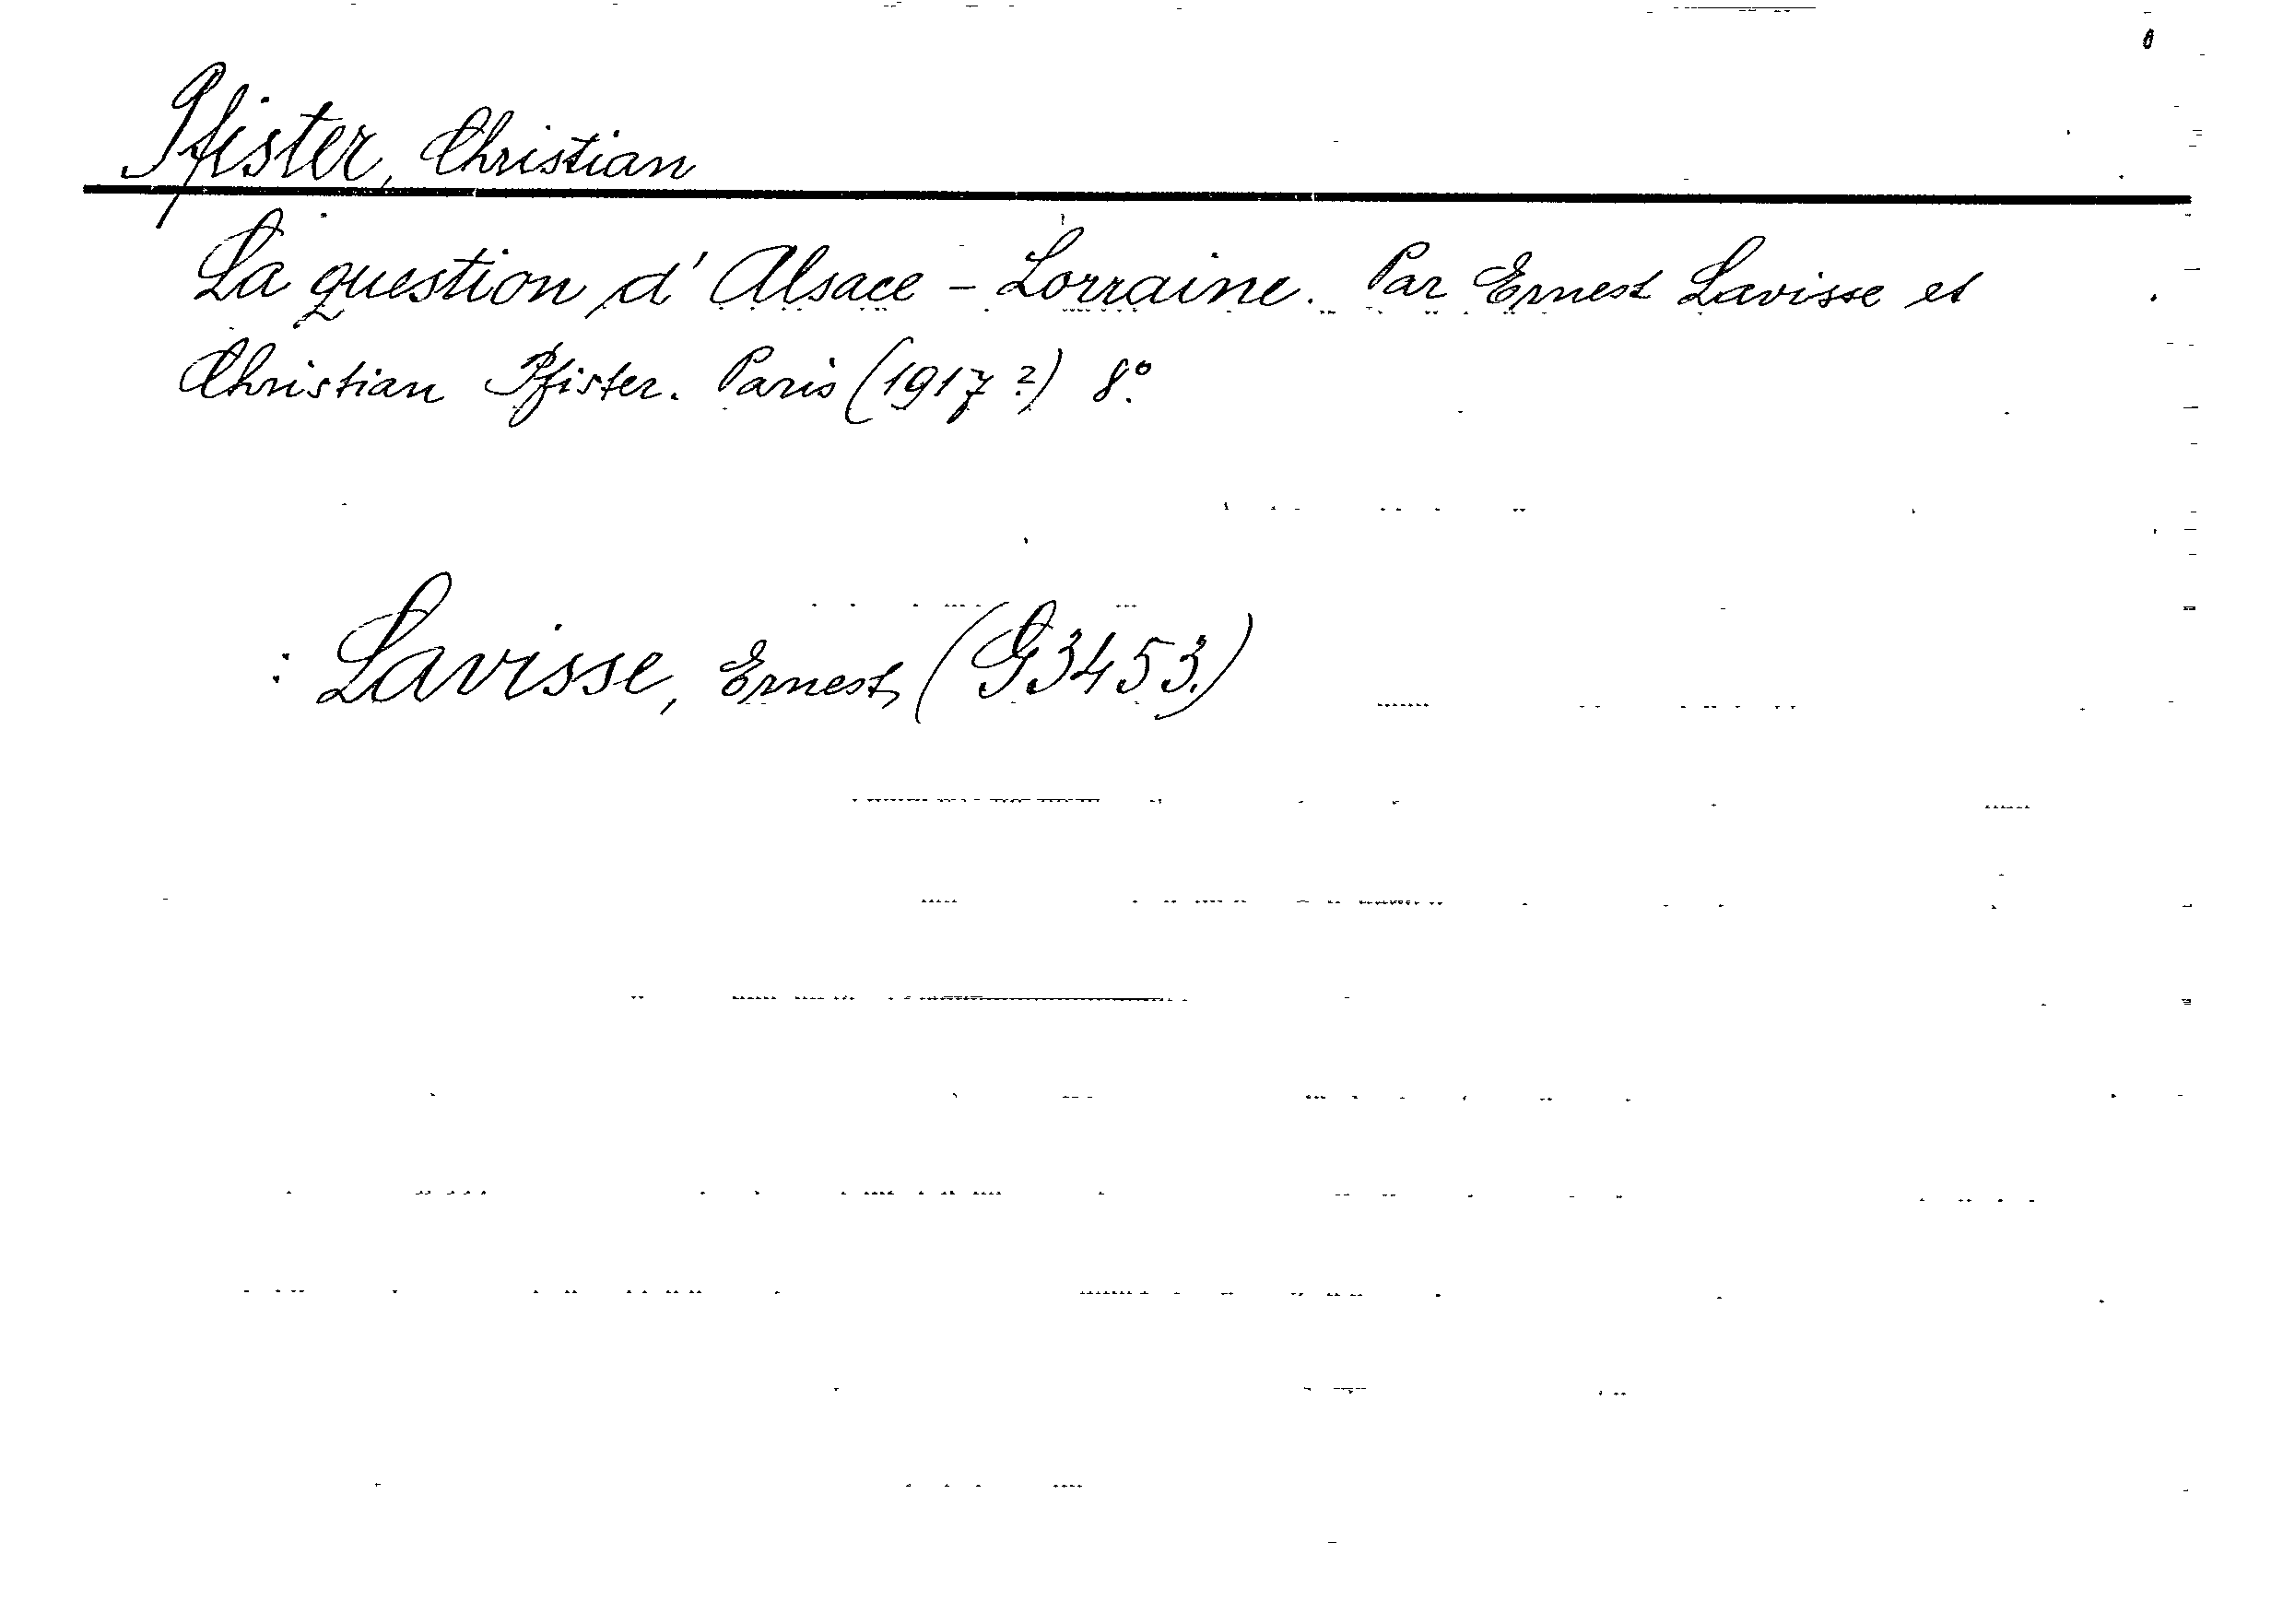 Pfister, Christian
La question d'Alsace-Lorraine. Par Ernest Lavisse et
Christian Pfister. Paris (1917?) 8°.
: Lavisse, Ernest, (G3453.)